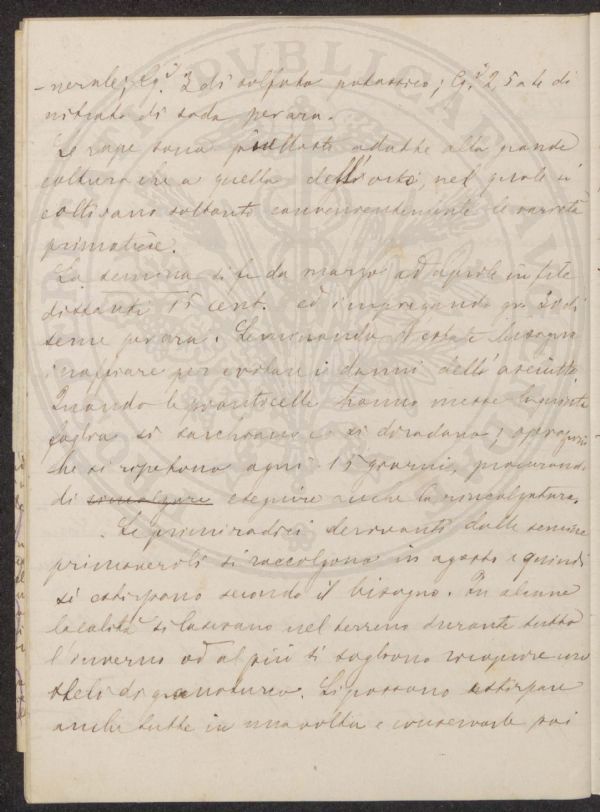 -nerale; Cg.i 3 di solfato potassico; Cg.i 2,5 a 4 di
nitrato di soda per ara.
Le rape sono piuttosto adatte alla grande
coltura che a quella dell'orto, nel quale si
coltivano soltanto convenientemente le varietà
primaticcie.
La semina si fa da marzo ad aprile in file
distanti 15 cent. ed impiegando gr. 20 di
seme per ara. Seminando d'estate bisogna
inaffiare per evitare i danni dell'asciutto
Quando le pianticelle hanno messe la quinta
foglia si sarchiano e si diradano; operazioni
che si ripetono ogni 15 giorni, procurando
di rincalzare eseguire anche la rincalzatura.
Le prime radici derivanti dalle semine
primaverili si raccolgono in agosto e quindi
si estirpano secondo il bisogno. In alcune
località si lasciano nel terreno durante tutto
l'inverno od al più si sogliono ricoprire con
steli di granoturco. Si possono estirpare
anche tutte in una volta e conservarle poi